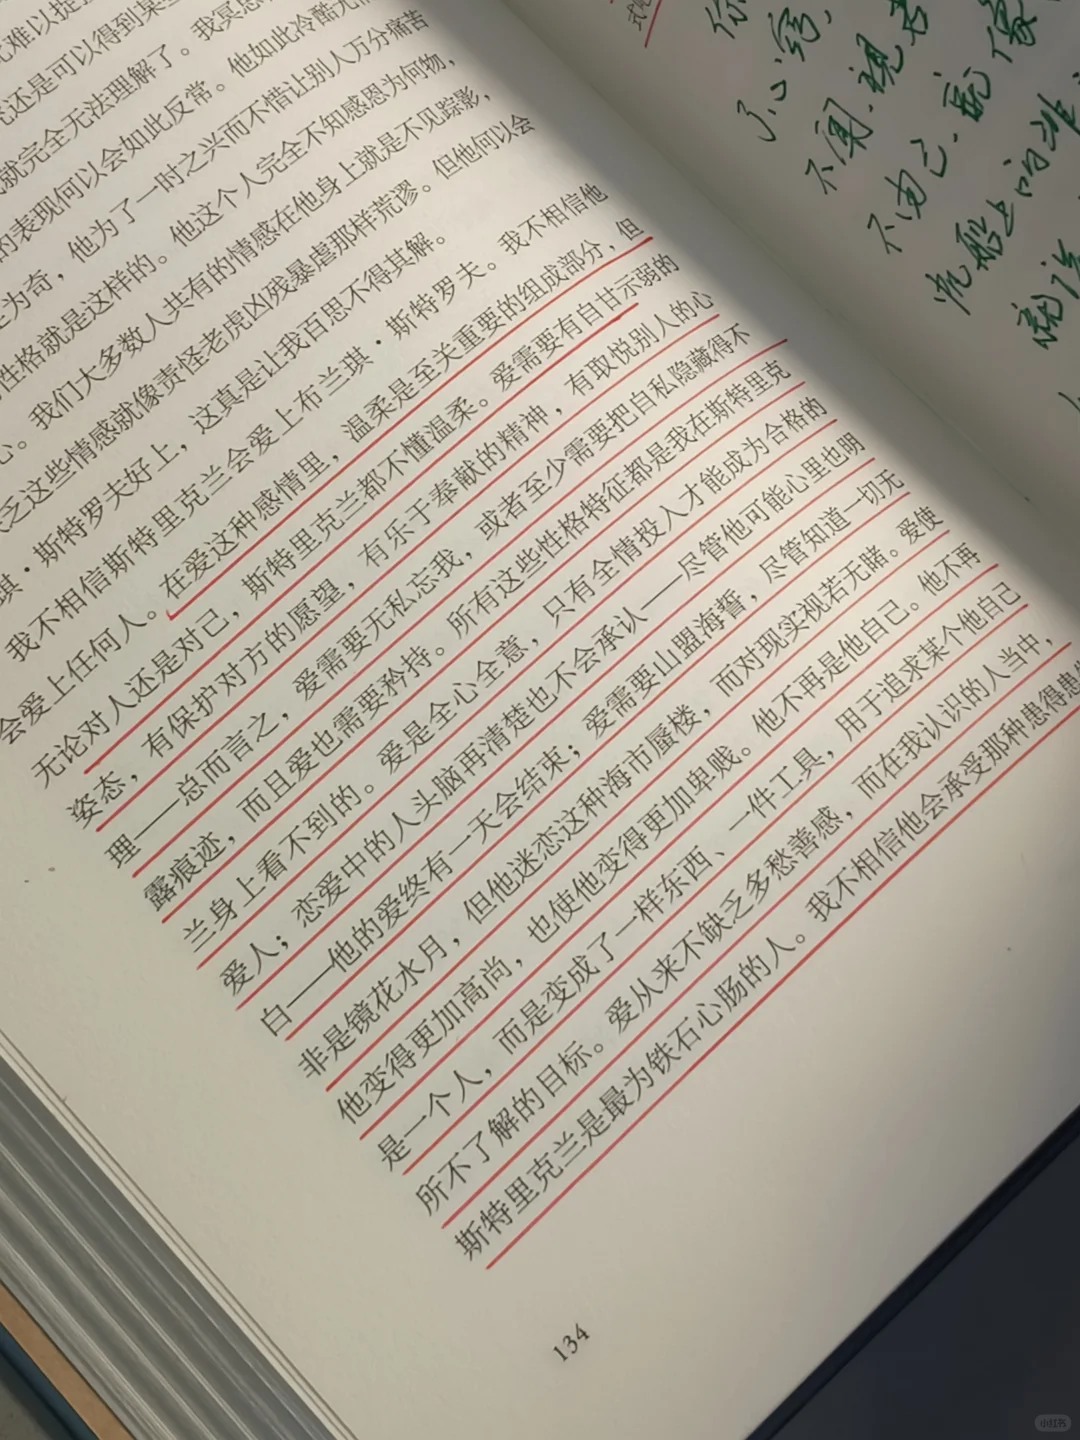 还是可以得到某
就完全无法理解了。我冥思
的表现何以会如此反常。他如此冷酷无情
为奇，他为了一时之兴而不惜让别人万分痛苦
性格就是这样的。他这个人完全不知感恩为何物，
心。我们大多数人共有的情感在他身上就是不见踪影，
乏这些情感就像责怪老虎凶残暴虐那样荒谬。但他何以会
琪·斯特罗夫好上，这真是让我百思不得其解。
我不相信斯特里克兰会爱上布兰琪·斯特罗夫。我不相信他
会爱上任何人。在爱这种感情里，温柔是至关重要的组成部分，但
无论对人还是对己，斯特里克兰都不懂温柔。爱需要有自甘示弱的
姿态，有保护对方的愿望，有乐于奉献的精神，有取悦别人的心
理——总而言之，爱需要无私忘我，或者至少需要把自私隐藏得不
露痕迹，而且爱也需要矜持。所有这些性格特征都是我在斯特里克
兰身上看不到的。爱是全心全意，只有全情投入才能成为合格的
爱人；恋爱中的人头脑再清楚也不会承认——尽管他可能心里也明
白——他的爱终有一天会结束；爱需要山盟海誓，尽管知道一切无
非是镜花水月，但他迷恋这种海市蜃楼，而对现实视若无睹。爱使
他变得更加高尚，也使他变得更加卑贱。他不再是他自己。他不再
是一个人，而是变成了一样东西、一件工具，用于追求某个他自己
所不了解的目标。爱从来不缺乏多愁善感，而在我认识的人当中，
斯特里克兰是最为铁石心肠的人。我不相信他会承受那种患得患
134
你
了心窍，
不闻，视
不由己，就像
船上的
就
小红书